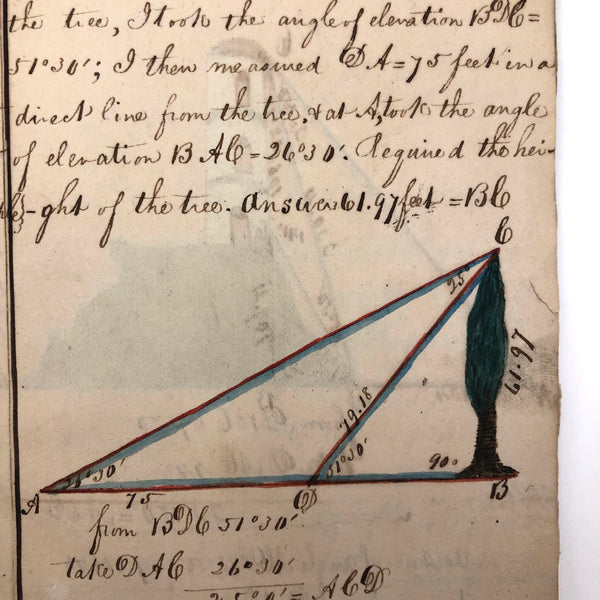 the tree, I took the angle of elevation BDC=
51°30'; I then measured DA=75 feet in a
direct line from the tree, & at A, took the angle
of elevation BAC=26°30'. Required the hei-
-ght of the tree. Answer 61.97 feet = BC
C
25°
61.97
79.18
26°30'
51°30'
90°
A
75
D
B
from BDC 51°30'
take DAC 26°30'
25°0' = ACD